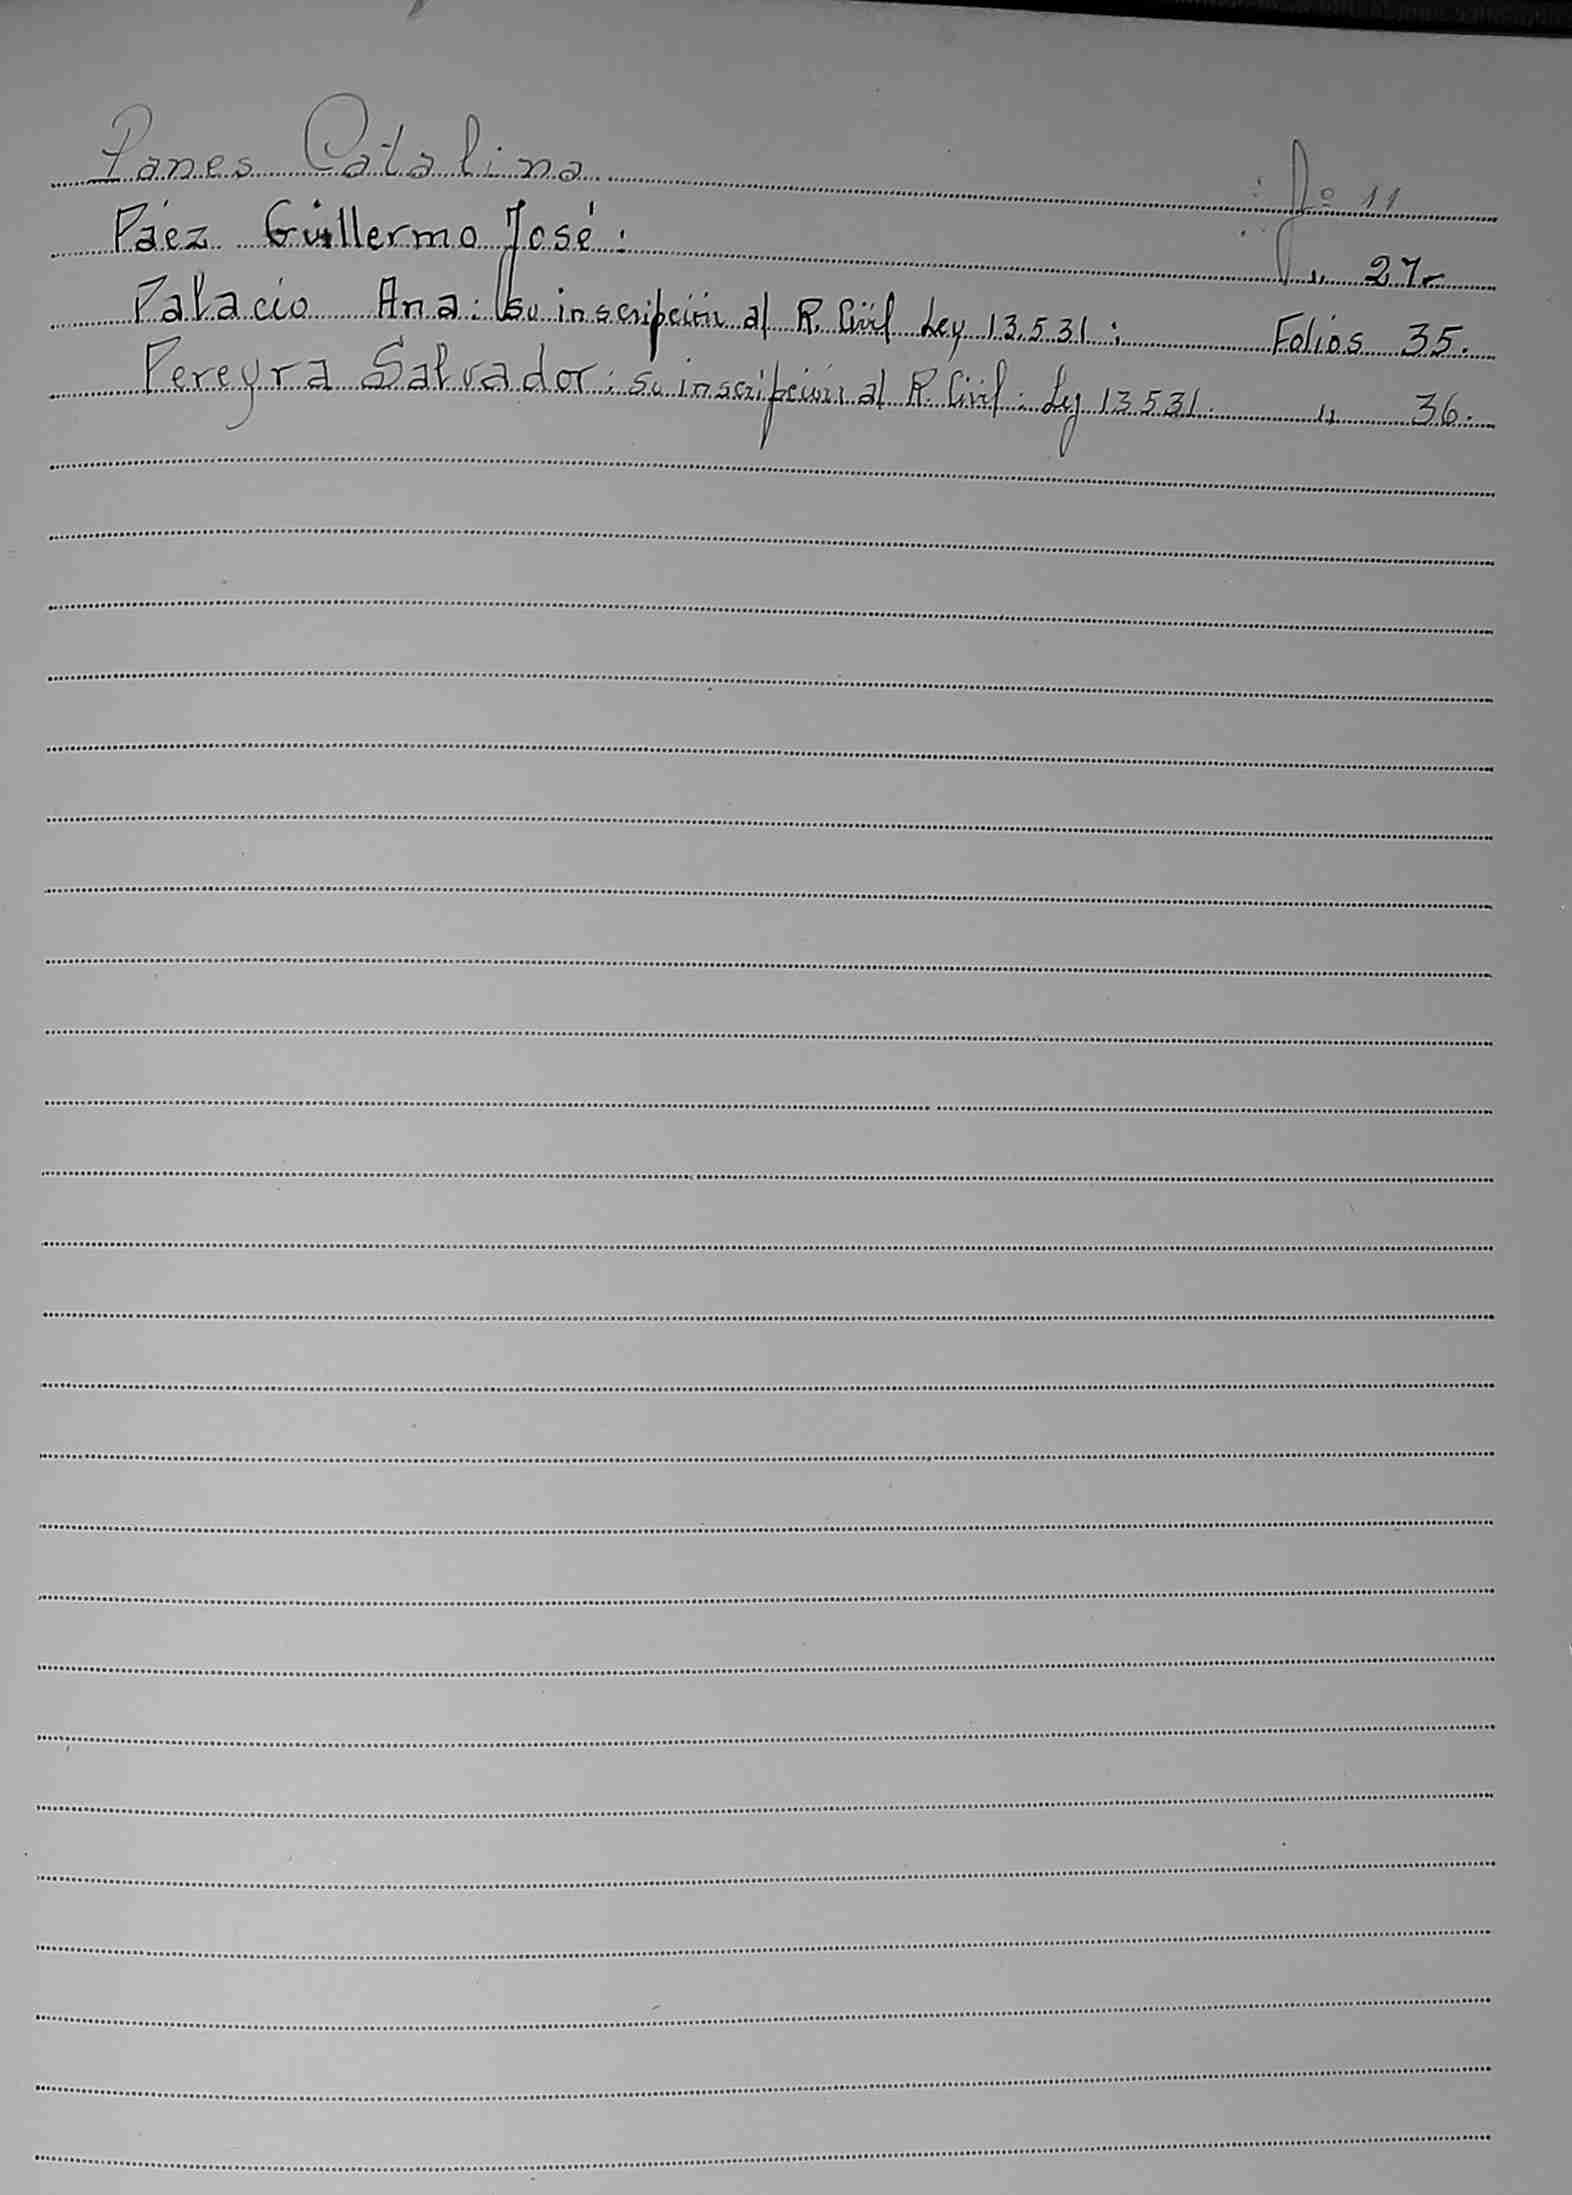 Panes Catalina : fº 11
Páez Guillermo José : " 27-
Palacio Ana : su inscripción al R. Civil Ley 13.531 : Folios 35.
Pereyra Salvador : su inscripción al R. Civil : Ley 13531. " 36.